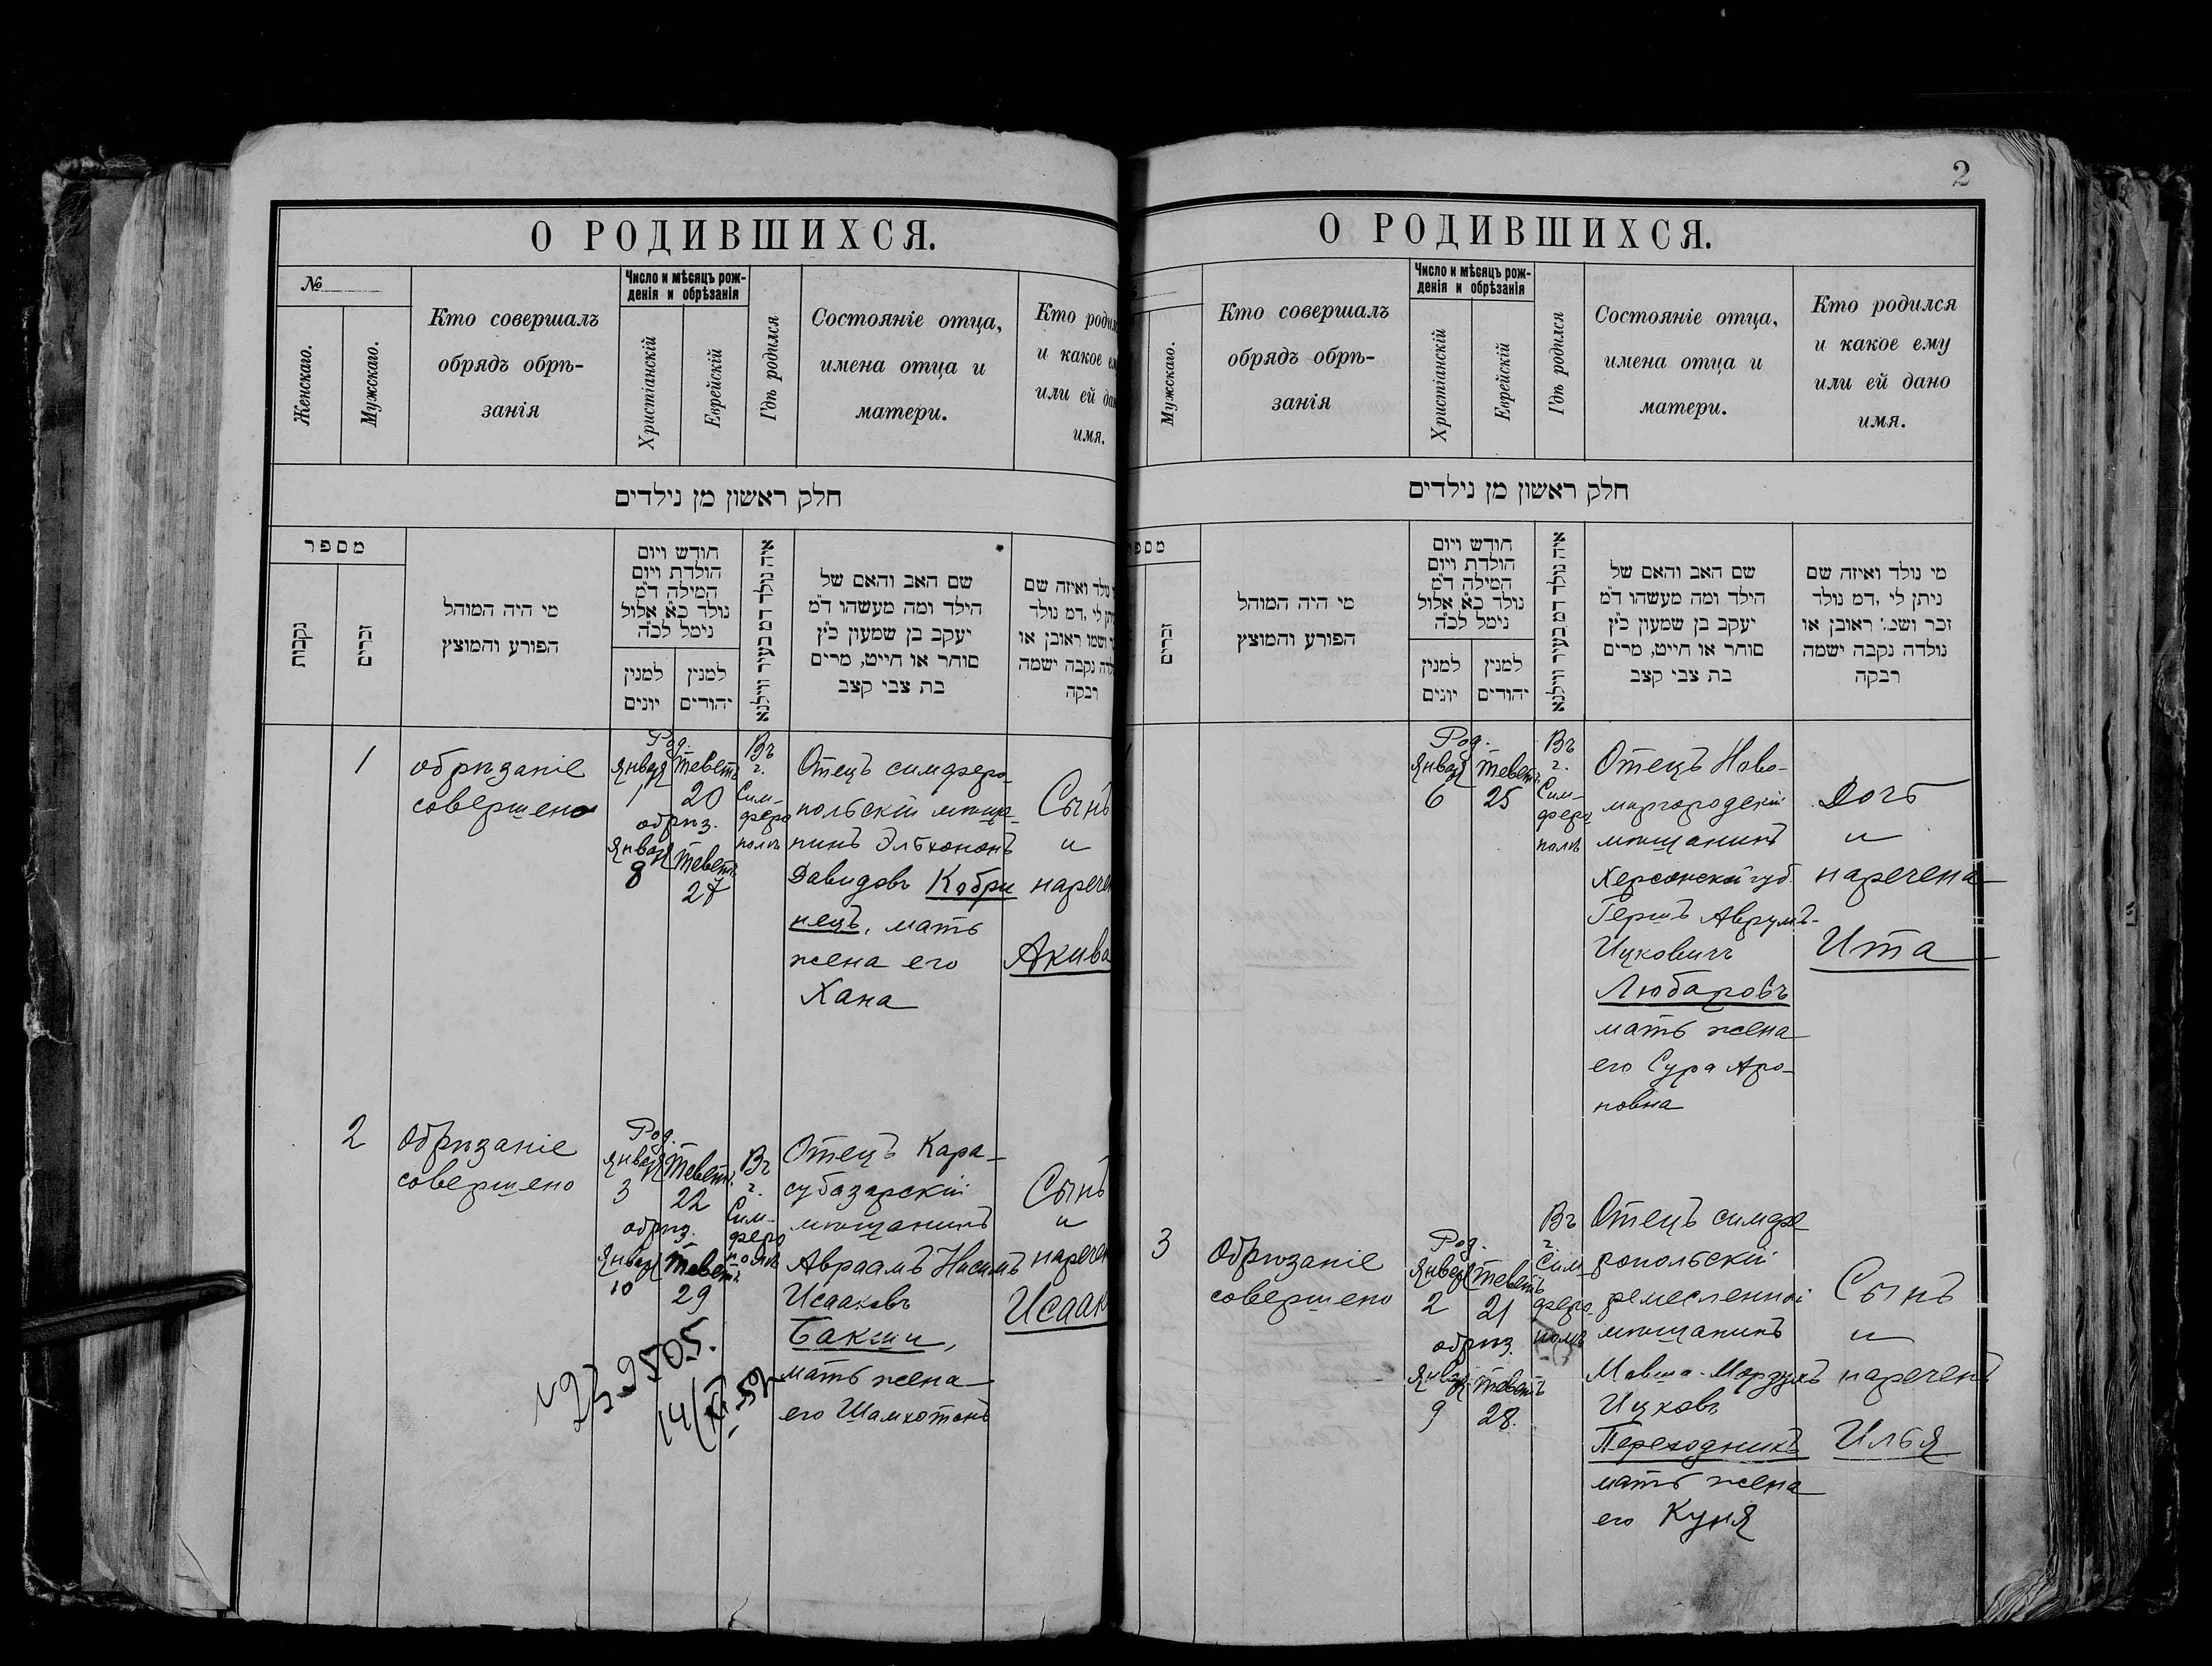 2
О РОДИВШИХСЯ.
№
Женскаго.
Мужскаго.
Кто совершалъ
обрядъ обрѣ-
занія
Число и мѣсяцъ рож-
денія и обрѣзанія
Христіанскій
Еврейскій
Гдѣ родился
Состояніе отца,
имена отца и
матери.
Кто роди
и какое е
или ей да
имя.
חלק ראשון מן נילדים
מספר
נקבות
זכרים
מי היה המוהל
הפורע והמוצץ
חודש ויום
הולדת ויום
המילה ד״מ
נולד כ״א אלול
נימל לכ״ה
למנין
יונים
למנין
יהודים
איה נולד דמ בעיר ווילנא
שם האב והאם של
הילד ומה מעשהו ד״מ
יעקב בן שמעון כ״ץ
סוחר או חייט, מרים
בת צבי קצב
נולד ואיזה שם
לי, דמ נולד
ושמו ראובן או
נקבה ישמה
רבקה
1
обрѣзаніе
совершено
Род.
Января
1
Теветъ
20
обрѣз.
Января
8
Теветъ
27
Въ
г.
Сим-
феро
полѣ
Отецъ симферо-
польскій мѣща-
нинъ Эльхононъ
Давидовъ Кобри
нецъ, мать
жена его
Хана
Сынъ
и
нарече
Акива
2
Обрѣзаніе
совершено
Род.
Января
3
Теветъ
22
обрѣз.
Января
10
Теветъ
29
Въ
г.
Сим-
феро
полѣ
Отецъ Кара-
субазарскій
мѣщанинъ
Авраамъ Нисимъ
Исааковъ
Бакши,
мать жена
его
Сынъ
и
наречен
Исаак
О РОДИВШИХСЯ.
Мужскаго.
Кто совершалъ
обрядъ обрѣ-
занія
Число и мѣсяцъ рож-
денія и обрѣзанія
Христіанскій
Еврейскій
Гдѣ родился
Состояніе отца,
имена отца и
матери.
Кто родился
и какое ему
или ей дано
имя.
חלק ראשון מן נילדים
מספ
זכרים
מי היה המוהל
הפורע והמוצץ
חודש ויום
הולדת ויום
המילה ד״מ
נולד כ״א אלול
נימל לכ״ה
למנין
יונים
למנין
יהודים
איה נולד דמ בעיר ווילנא
שם האב והאם של
הילד ומה מעשהו ד״מ
יעקב בן שמעון כ״ץ
סוחר או חייט, מרים
בת צבי קצב
מי נולד ואיזה שם
ניתן לי, דמ נולד
זכר ושמ׳ ראובן או
נולדה נקבה ישמה
רבקה
Род.
Января
6
Теветъ
25
Въ
г.
Сим-
феро
полѣ
Отецъ Ново-
миргородскій
мѣщанинъ
Херсонской губ.
Гершъ Аврумъ-
Ицковичъ
Любаровъ
мать жена
его Сура Аро-
новна
Дочь
и
наречена
Ита
3
Обрѣзаніе
совершено
Род.
Января
2
Теветъ
21
обрѣз.
Января
9
Теветъ
28.
Въ
г.
Сим-
феро-
полѣ
Отецъ симфе
ропольскій
ремесленной
мѣщанинъ
Мовша-Мордухъ
Ицковъ
Переходникъ
мать жена
его Куня
Сынъ
и
нареченъ
Илья